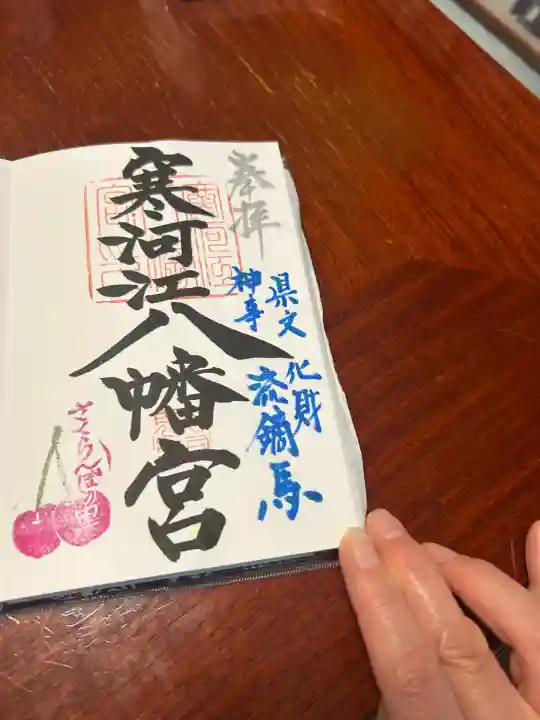 奉拝
県文化財
神事
流鏑馬
寒河江八幡宮
さくらんぼの里